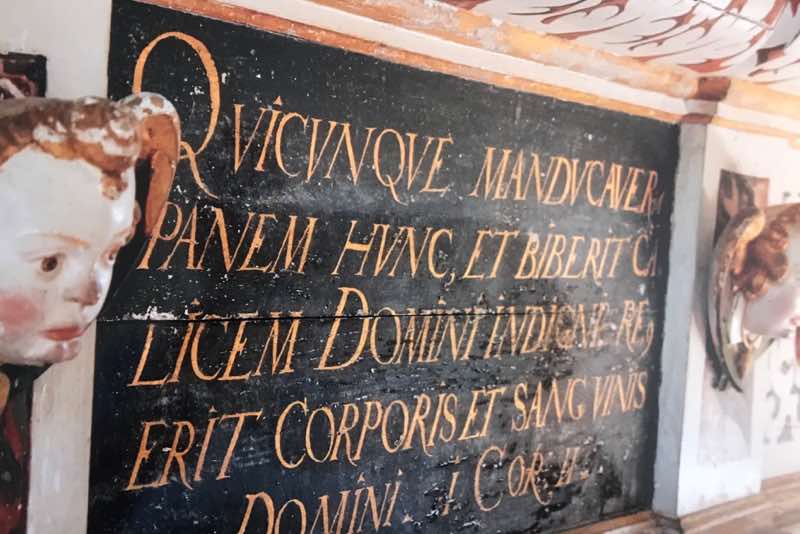 QVICVNQVE MANDVCAVERI
PANEM HVNC, ET BIBERIT CA
LICEM DOMINI INDIGNE RE9
ERIT CORPORIS ET SANGVINIS
DOMINI. I COR. II.